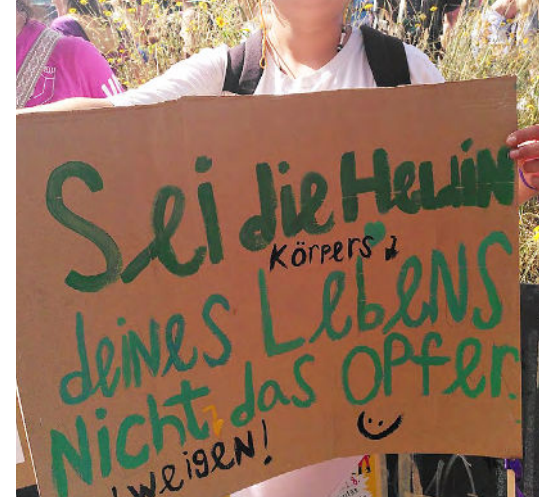 Sei die Heldin
Körpers
deines Lebens
Nicht das Opfer